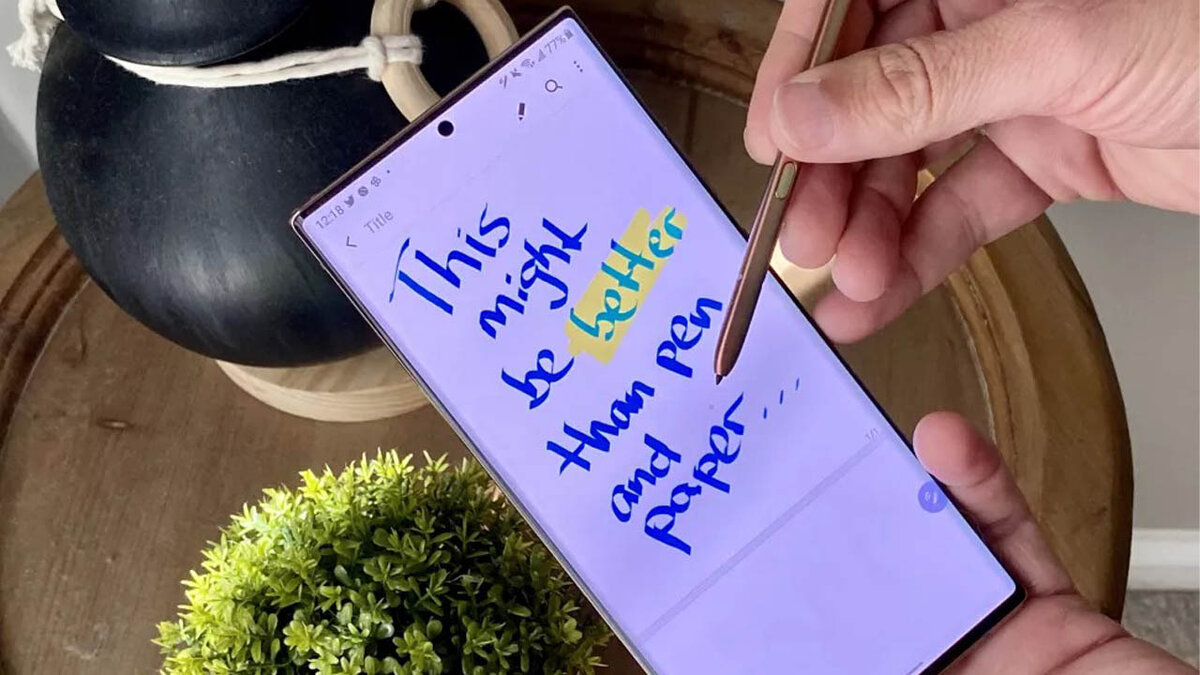 12:18 77%
Title
This
might
be better
than pen
and
paper...
1/1